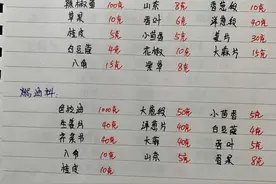 辣椒酱 100克 山奈 8克 香葱段 10克
草果 10克 香叶 6克 洋葱段 40克
桂皮 5克 小茴香 5克 姜片 30克
白豆蔻 4克 花椒 10克 大蒜片 15克
八角 15克 紫草 8克
燃油料:
色拉油 1000克 大葱段 50克 小茴香 5克
生姜片 40克 洋葱片 40克 白豆蔻 4克
芹菜节 40克 大蒜 40克 香叶 5克
八角 10克 山奈 5克 香果 8克
桂皮 10克